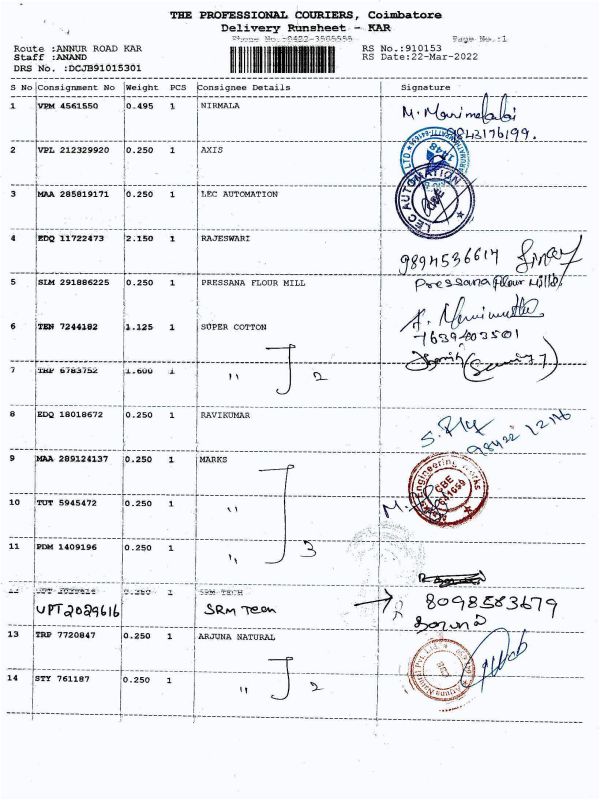 THE PROFESSIONAL COURIERS, Coimbatore
Delivery Runsheet - KAR
Page No.:1
Route :ANNUR ROAD KAR RS No.:910153
Staff :ANAND RS Date:22-Mar-2022
DRS No. :DCJB91015301
S No Consignment No Weight PCS Consignee Details Signature
1 VPM 4561550 0.495 1 NIRMALA
9843176199.
2 VPL 212329920 0.250 1 AXIS
3 MAA 285819171 0.250 1 LEC AUTOMATION
LEC AUTOMATION CBE
4 EDQ 11722473 2.150 1 RAJESWARI
9894536614
5 SLM 291886225 0.250 1 PRESSANA FLOUR MILL
Pressana flour Mills
6 TEN 7244182 1.125 1 SUPER COTTON
7639403501
7 TRP 6783752 1.600 1 " 2
8 EDQ 18018672 0.250 1 RAVIKUMAR
9 MAA 289124137 0.250 1 MARKS
Engineering Works CBE
10 TUT 5945472 0.250 1 "
11 PDM 1409196 0.250 1 " 3
12 SRM TECH
VPT2029616 SRM Tech 8098583679
13 TRP 7720847 0.250 1 ARJUNA NATURAL
14 STY 761187 0.250 1 " 2